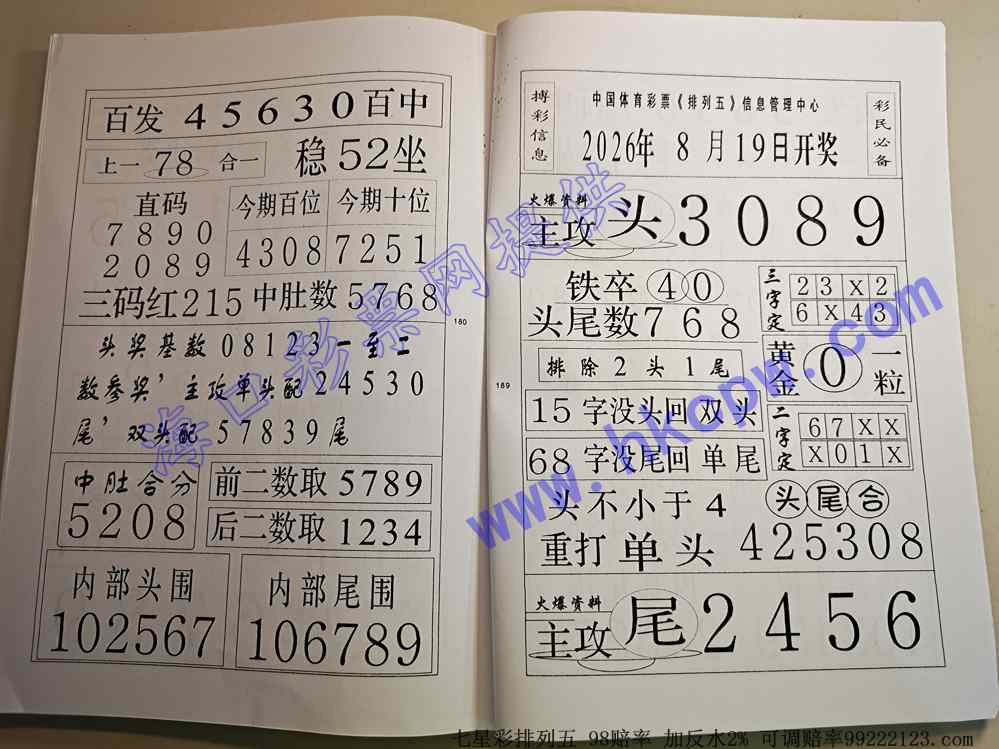 百发 45630 百中
上一 78 合一
稳 52 坐
直码
7890
2089
今期百位
4308
今期十位
7251
三码红 215 中肚数 5768
头奖基数 08123 一至二
数参奖’主攻单头配 24530
尾’双头配 57839 尾
中肚合分
5208
前二数取 5789
后二数取 1234
内部头围
102567
内部尾围
106789
180
搏彩信息
中国体育彩票《排列五》信息管理中心
2026年 8 月 19日开奖
彩民必备
火爆资料
主攻 头 3089
铁卒 40
头尾数 768
三字定
23X2
6X43
排除 2 头 1 尾
黄金 0 一粒
15 字没头回 双头
68 字没尾回 单尾
二字定
67XX
X01X
头不小于 4
头尾合
重打 单头 425308
火爆资料
主攻 尾 2456
189
海口彩票网提供
www.hkcpw.com
七星彩排列五 98赔率 加反水2% 可调赔率99222123.com